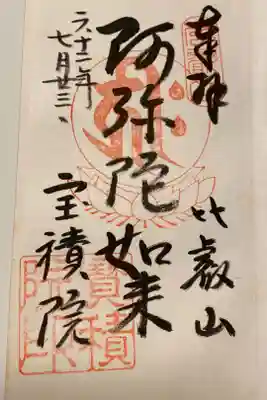 奉拝
比叡山
阿弥陀如来
六十二年
七月廿三、
宝積院
寶積